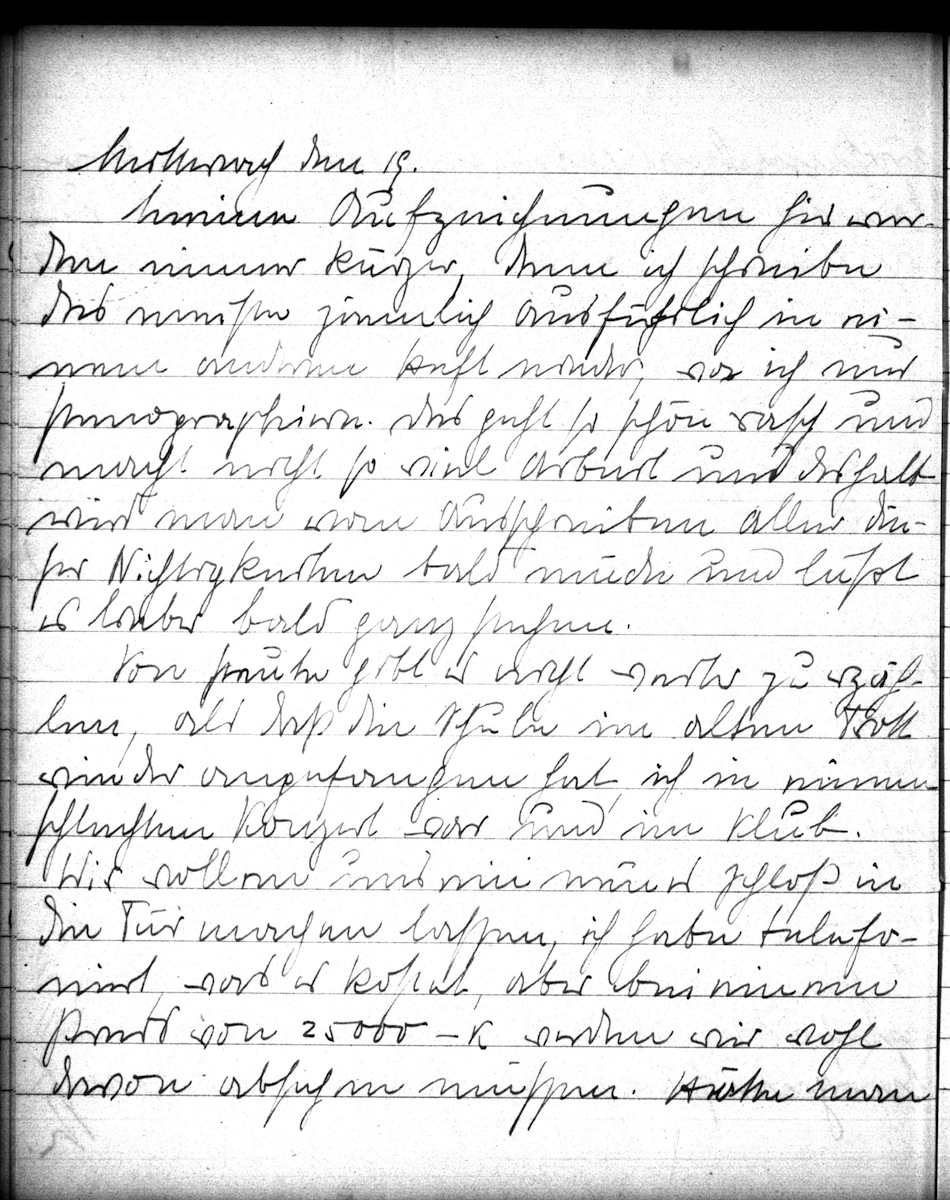 Mittwoch den 19.
Meine Aufzeichnungen hier wer-
den immer kürzer, denn ich schreibe
das meiste ziemlich ausführlich in ei-
nem anderen Heft nieder, wo ich nur
stenographiere. Das geht so schön rasch und
macht nicht so viel Arbeit und deshalb
wird man vom Ausschreiben aller die-
ser Nichtigkeiten bald müde und läßt
es lieber bald ganz stehen.
Von heute gibt es nicht weiter zu erzäh-
len, als daß die Schule im alten Trott
wieder angefangen hat, ich in einem
schlechten Konzert war und im Klub.
Wir wollen uns ein neues Schloß in
die Tür machen lassen, ich habe telefo-
niert, was es kostet, aber bei einem
Preis von 25000 – K werden wir wohl
davon absehen müssen. Hätte man